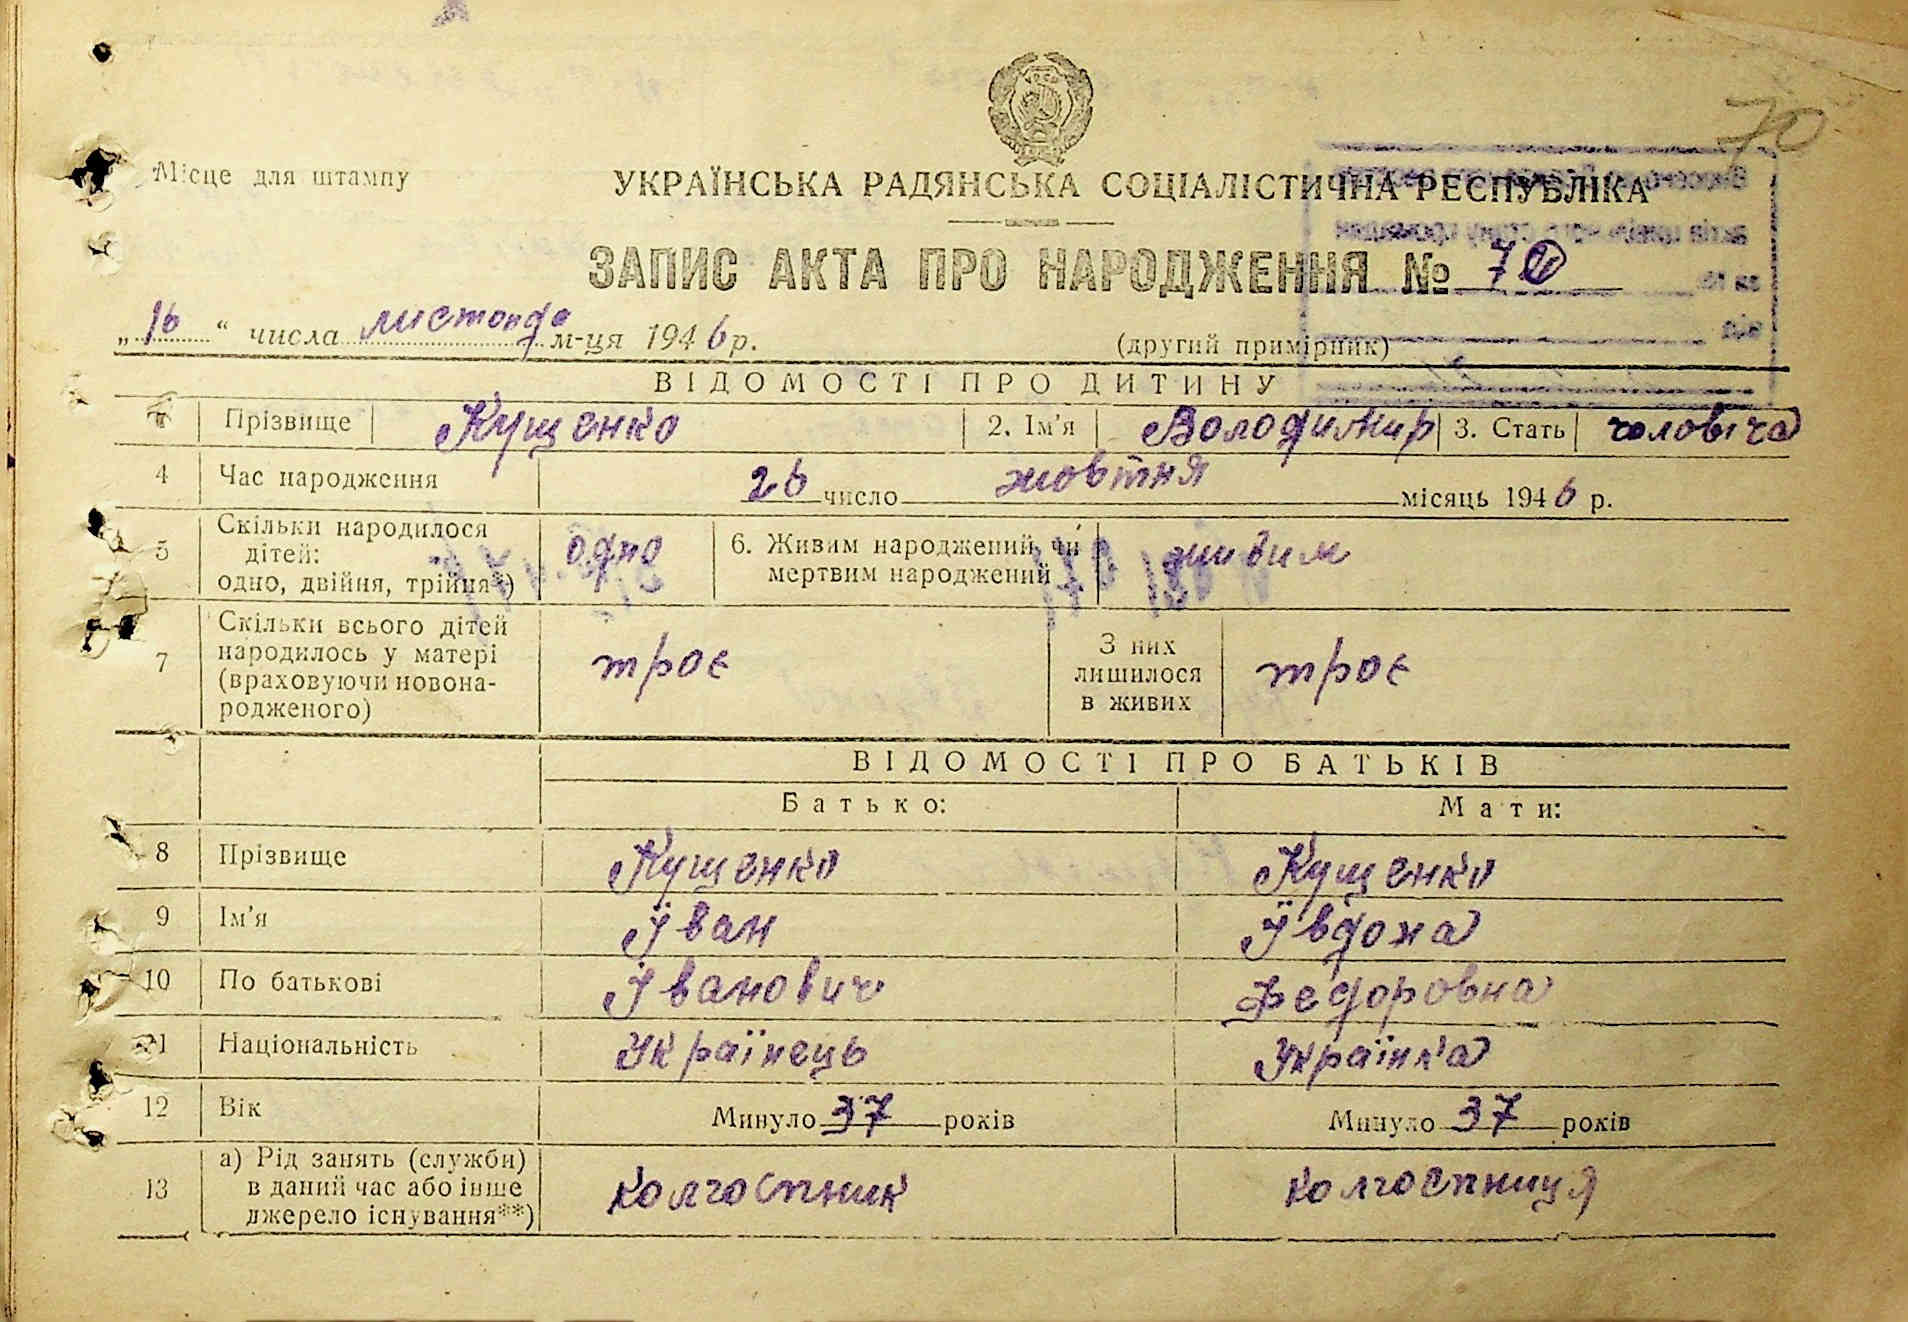 70
Місце для штампу
УКРАЇНСЬКА РАДЯНСЬКА СОЦІАЛІСТИЧНА РЕСПУБЛІКА
ЗАПИС АКТА ПРО НАРОДЖЕННЯ № 70
„16“ числа листопада м-ця 1946 р.
(другий примірник)
ВІДОМОСТІ ПРО ДИТИНУ
Прізвище Кущенко 2. Ім'я Володимир 3. Стать чоловіча
4 Час народження 26 число жовтня місяць 1946 р.
5 Скільки народилося дітей: одно, двійня, трійня*) одно 6. Живим народжений чи мертвим народжений живим
7 Скільки всього дітей народилось у матері (враховуючи новонародженого) троє З них лишилося в живих троє
ВІДОМОСТІ ПРО БАТЬКІВ
Батько: Мати:
8 Прізвище Кущенко Кущенко
9 Ім'я Іван Ївдоха
10 По батькові Іванович Федоровна
11 Національність Українець Українка
12 Вік Минуло 37 років Минуло 37 років
13 а) Рід занять (служби) в даний час або інше джерело існування**) колгоспник колгоспниця